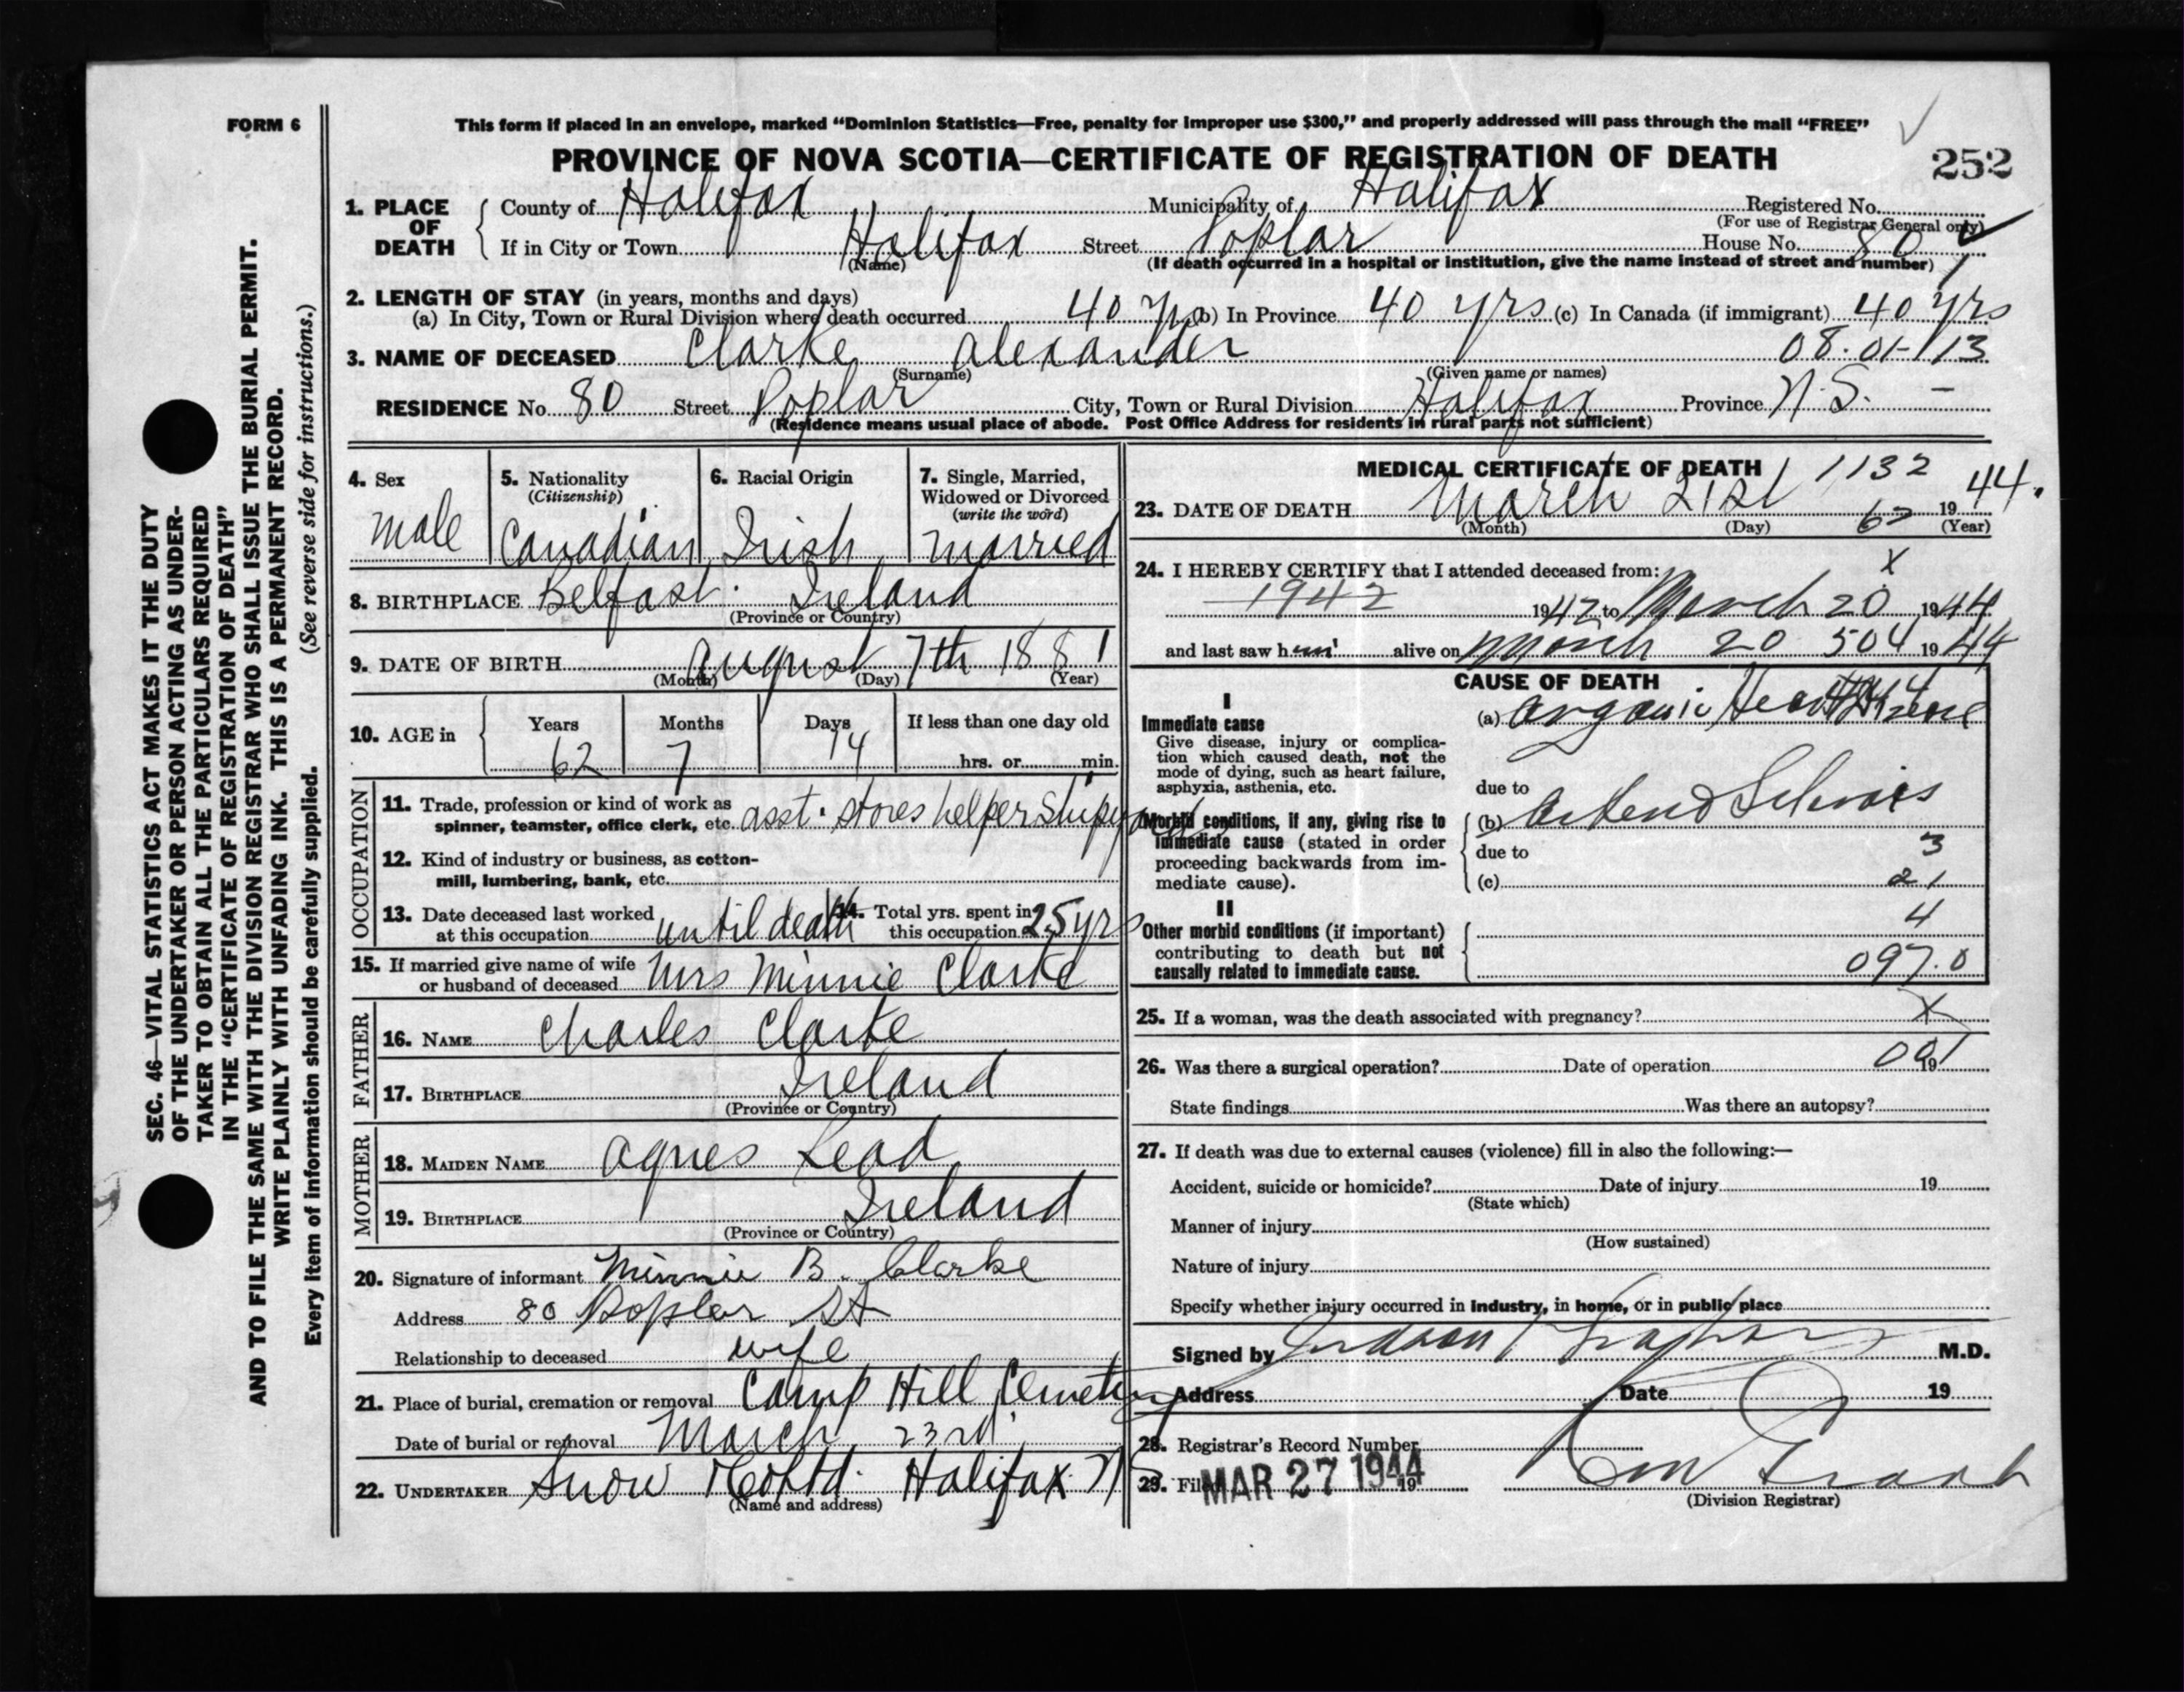 FORM 6
This form if placed in an envelope, marked “Dominion Statistics—Free, penalty for improper use $300,” and properly addressed will pass through the mail “FREE”
PROVINCE OF NOVA SCOTIA—CERTIFICATE OF REGISTRATION OF DEATH
252
1. PLACE OF DEATH
County of Halifax Municipality of Halifax Registered No.
(For use of Registrar General only)
If in City or Town Halifax Street Poplar House No. 80
(Name) (If death occurred in a hospital or institution, give the name instead of street and number)
2. LENGTH OF STAY (in years, months and days)
(a) In City, Town or Rural Division where death occurred 40 yrs (b) In Province 40 yrs (c) In Canada (if immigrant) 40 yrs
3. NAME OF DECEASED Clarke Alexander 08.01-113
(Surname) (Given name or names)
RESIDENCE No. 80 Street Poplar City, Town or Rural Division Halifax Province N.S. —
(Residence means usual place of abode. Post Office Address for residents in rural parts not sufficient)
4. Sex
male
5. Nationality
(Citizenship)
Canadian
6. Racial Origin
Irish
7. Single, Married,
Widowed or Divorced
(write the word)
married
8. BIRTHPLACE Belfast. Ireland
(Province or Country)
9. DATE OF BIRTH August 7th 1881
(Month) (Day) (Year)
10. AGE in
Years Months Days If less than one day old
62 7 14 hrs. or min.
OCCUPATION
11. Trade, profession or kind of work as
spinner, teamster, office clerk, etc. asst. stores helper Shipyard
12. Kind of industry or business, as cotton-
mill, lumbering, bank, etc.
13. Date deceased last worked
at this occupation until death
14. Total yrs. spent in
this occupation 25 yrs
15. If married give name of wife
or husband of deceased Mrs Minnie Clarke
FATHER
16. NAME Charles Clarke
17. BIRTHPLACE Ireland
(Province or Country)
MOTHER
18. MAIDEN NAME Agnes Lead
19. BIRTHPLACE Ireland
(Province or Country)
20. Signature of informant Minnie B. Clarke
Address 80 Poplar St
Relationship to deceased wife
21. Place of burial, cremation or removal Camp Hill Cemetery
Date of burial or removal March 23rd
22. UNDERTAKER Snow & Co Ltd. Halifax N.S.
(Name and address)
MEDICAL CERTIFICATE OF DEATH 1132
23. DATE OF DEATH March 21st 1944.
(Month) (Day) 62 (Year)
24. I HEREBY CERTIFY that I attended deceased from: X
1942 1942 to March 20 1944
and last saw him alive on March 20 504 1944
CAUSE OF DEATH
I
Immediate cause
Give disease, injury or complica-
tion which caused death, not the
mode of dying, such as heart failure,
asphyxia, asthenia, etc.
(a) Organic Heart
due to
Morbid conditions, if any, giving rise to
immediate cause (stated in order
proceeding backwards from im-
mediate cause).
(b)
due to 3
(c) 21
II
4
Other morbid conditions (if important)
contributing to death but not
causally related to immediate cause.
097.0
25. If a woman, was the death associated with pregnancy? X
26. Was there a surgical operation? Date of operation 19
State findings Was there an autopsy?
27. If death was due to external causes (violence) fill in also the following:—
Accident, suicide or homicide? Date of injury 19
(State which)
Manner of injury
(How sustained)
Nature of injury
Specify whether injury occurred in industry, in home, or in public place
Signed by M.D.
Address Date 19
28. Registrar's Record Number
29. Filed MAR 27 1944 19
(Division Registrar)
SEC. 46—VITAL STATISTICS ACT MAKES IT THE DUTY
OF THE UNDERTAKER OR PERSON ACTING AS UNDER-
TAKER TO OBTAIN ALL THE PARTICULARS REQUIRED
IN THE “CERTIFICATE OF REGISTRATION OF DEATH”
AND TO FILE THE SAME WITH THE DIVISION REGISTRAR WHO SHALL ISSUE THE BURIAL PERMIT.
WRITE PLAINLY WITH UNFADING INK. THIS IS A PERMANENT RECORD.
Every item of information should be carefully supplied. (See reverse side for instructions.)